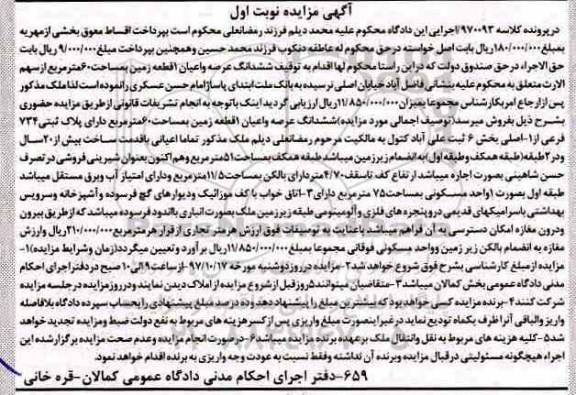 آگهی مزایده نوبت اول
در پرونده کلاسه ۹۷۰۰۹۳/اجرایی این دادگاه محکوم علیه محمد دیلم فرزند رمضانعلی محکوم است بپرداخت اقساط معوق بخشی از مهریه
بمبلغ ۱۸۰/۰۰۰/۰۰۰ ریال بابت اصل خواسته در حق محکوم له عاطفه دنکوب فرزند محمد حسین و همچنین بپرداخت مبلغ ۹/۰۰۰/۰۰۰ ریال بابت
حق الاجراء در حق صندوق دولت که در این راستا محکوم لها اقدام به توقیف ششدانگ عرصه واعیان ۱قطعه زمین بمساحت ۶۰مترمربع از سهم
الارث متعلق به محکوم علیه بنشانی فاضل آباد خیابان اصلی نرسیده به بانک ملت ابتدای پاساژ امام حسن عسکری را نموده است لذا ملک مذکور
پس از ارجاع امر بکارشناس مجموعا بمیزان ۱۱/۸۵۰/۰۰۰/۰۰۰ ریال ارزیابی گردید اینک باتوجه به انجام تشریفات قانونی از طریق مزایده حضوری
بشرح ذیل بفروش میرسد(توصیف اجمالی مورد مزایده)ششدانگ عرصه واعیان ۱قطعه زمین بمساحت ۶۰مترمربع دارای پلاک ثبتی ۷۳۴
فرعی از ۱-اصلی بخش ۶ ثبت علی آباد کتول به مالکیت مرحوم رمضانعلی دیلم ملک مذکور تماما اعیانی باقدمت ساخت بیش از ۲۰سال
ودر ۲طبقه(طبقه همکف وطبقه اول)به انضمام زیرزمین میباشد طبقه همکف بمساحت ۵۱مترمربع وهم اکنون بعنوان شیرینی فروشی در تصرف
حسن شاهینی بصورت اجاره میباشد ارتفاع کف تاسقف ۴/۷۰متر دارای بالکن بمساحت ۱۱/۵مترمربع ودارای امتیاز آب وبرق مستقل میباشد
طبقه اول بصورت ۱واحد مسکونی بمساحت ۷۵ مترمربع دارای ۳-اتاق خواب با کف موزائیک ودیوارهای گچ فرسوده و آشپزخانه وسرویس
بهداشتی باسرامیکهای قدیمی دروپنجره های فلزی وآلومینومی طبقه زیرزمین ملک بصورت انباری بااندود فرسوده میباشد که از طریق بیرون
ودرون مغازه امکان دسترسی به آن فراهم میباشد باعنایت به توصیفات فوق ارزش هرمتر تجاری از قرار هر مترمربع ۲۱۰/۰۰۰/۰۰۰ ریال وارزش
مغازه به انضمام بالکن زیر زمین وواحد مسکونی فوقانی مجموعا بمبلغ ۱۱/۸۵۰/۰۰۰/۰۰۰ ریال برآورد و تعیین میگردد(زمان وشرایط مزایده)۱-
مزایده از مبلغ کارشناسی بشرح فوق شروع خواهد شد۲-مزایده در روز دوشنبه مورخه ۹۷/۱۰/۱۷ -از ساعت ۹الی ۱۰ صبح در دفتر اجرای احکام
مدنی دادگاه عمومی بخش کمالان میباشد۳-متقاضیان میتوانند ۵روز قبل از شروع مزایده از املاک دیدن نمایند ودر روز مزایده در جلسه مزایده
شرکت کنند۴-برنده مزایده کسی خواهد بود که بیشترین مبلغ را پیشنهاد دهد و ده درصد مبلغ پیشنهادی را بحساب سپرده دادگاه بلافاصله
واریز والباقی آنرا ظرف یکماه تودیع نماید در غیر اینصورت مبلغ واریزی پس از کسر هزینه های مربوط به نفع دولت ضبط ومزایده تجدید خواهد
شد۵-کلیه هزینه های مربوط به نقل وانتقال ملک بر عهده برنده مزایده میباشد۶-در صورت انجام مزایده وعدم صحت مزایده برگزار شده این
اجراء هیچگونه مسئولیتی در قبال مزایده وبرنده آن نداشته وفقط نسبت به عودت وجه واریزی به برنده اقدام خواهد نمود.
۶۵۹-دفتر اجرای احکام مدنی دادگاه عمومی کمالان-قره خانی